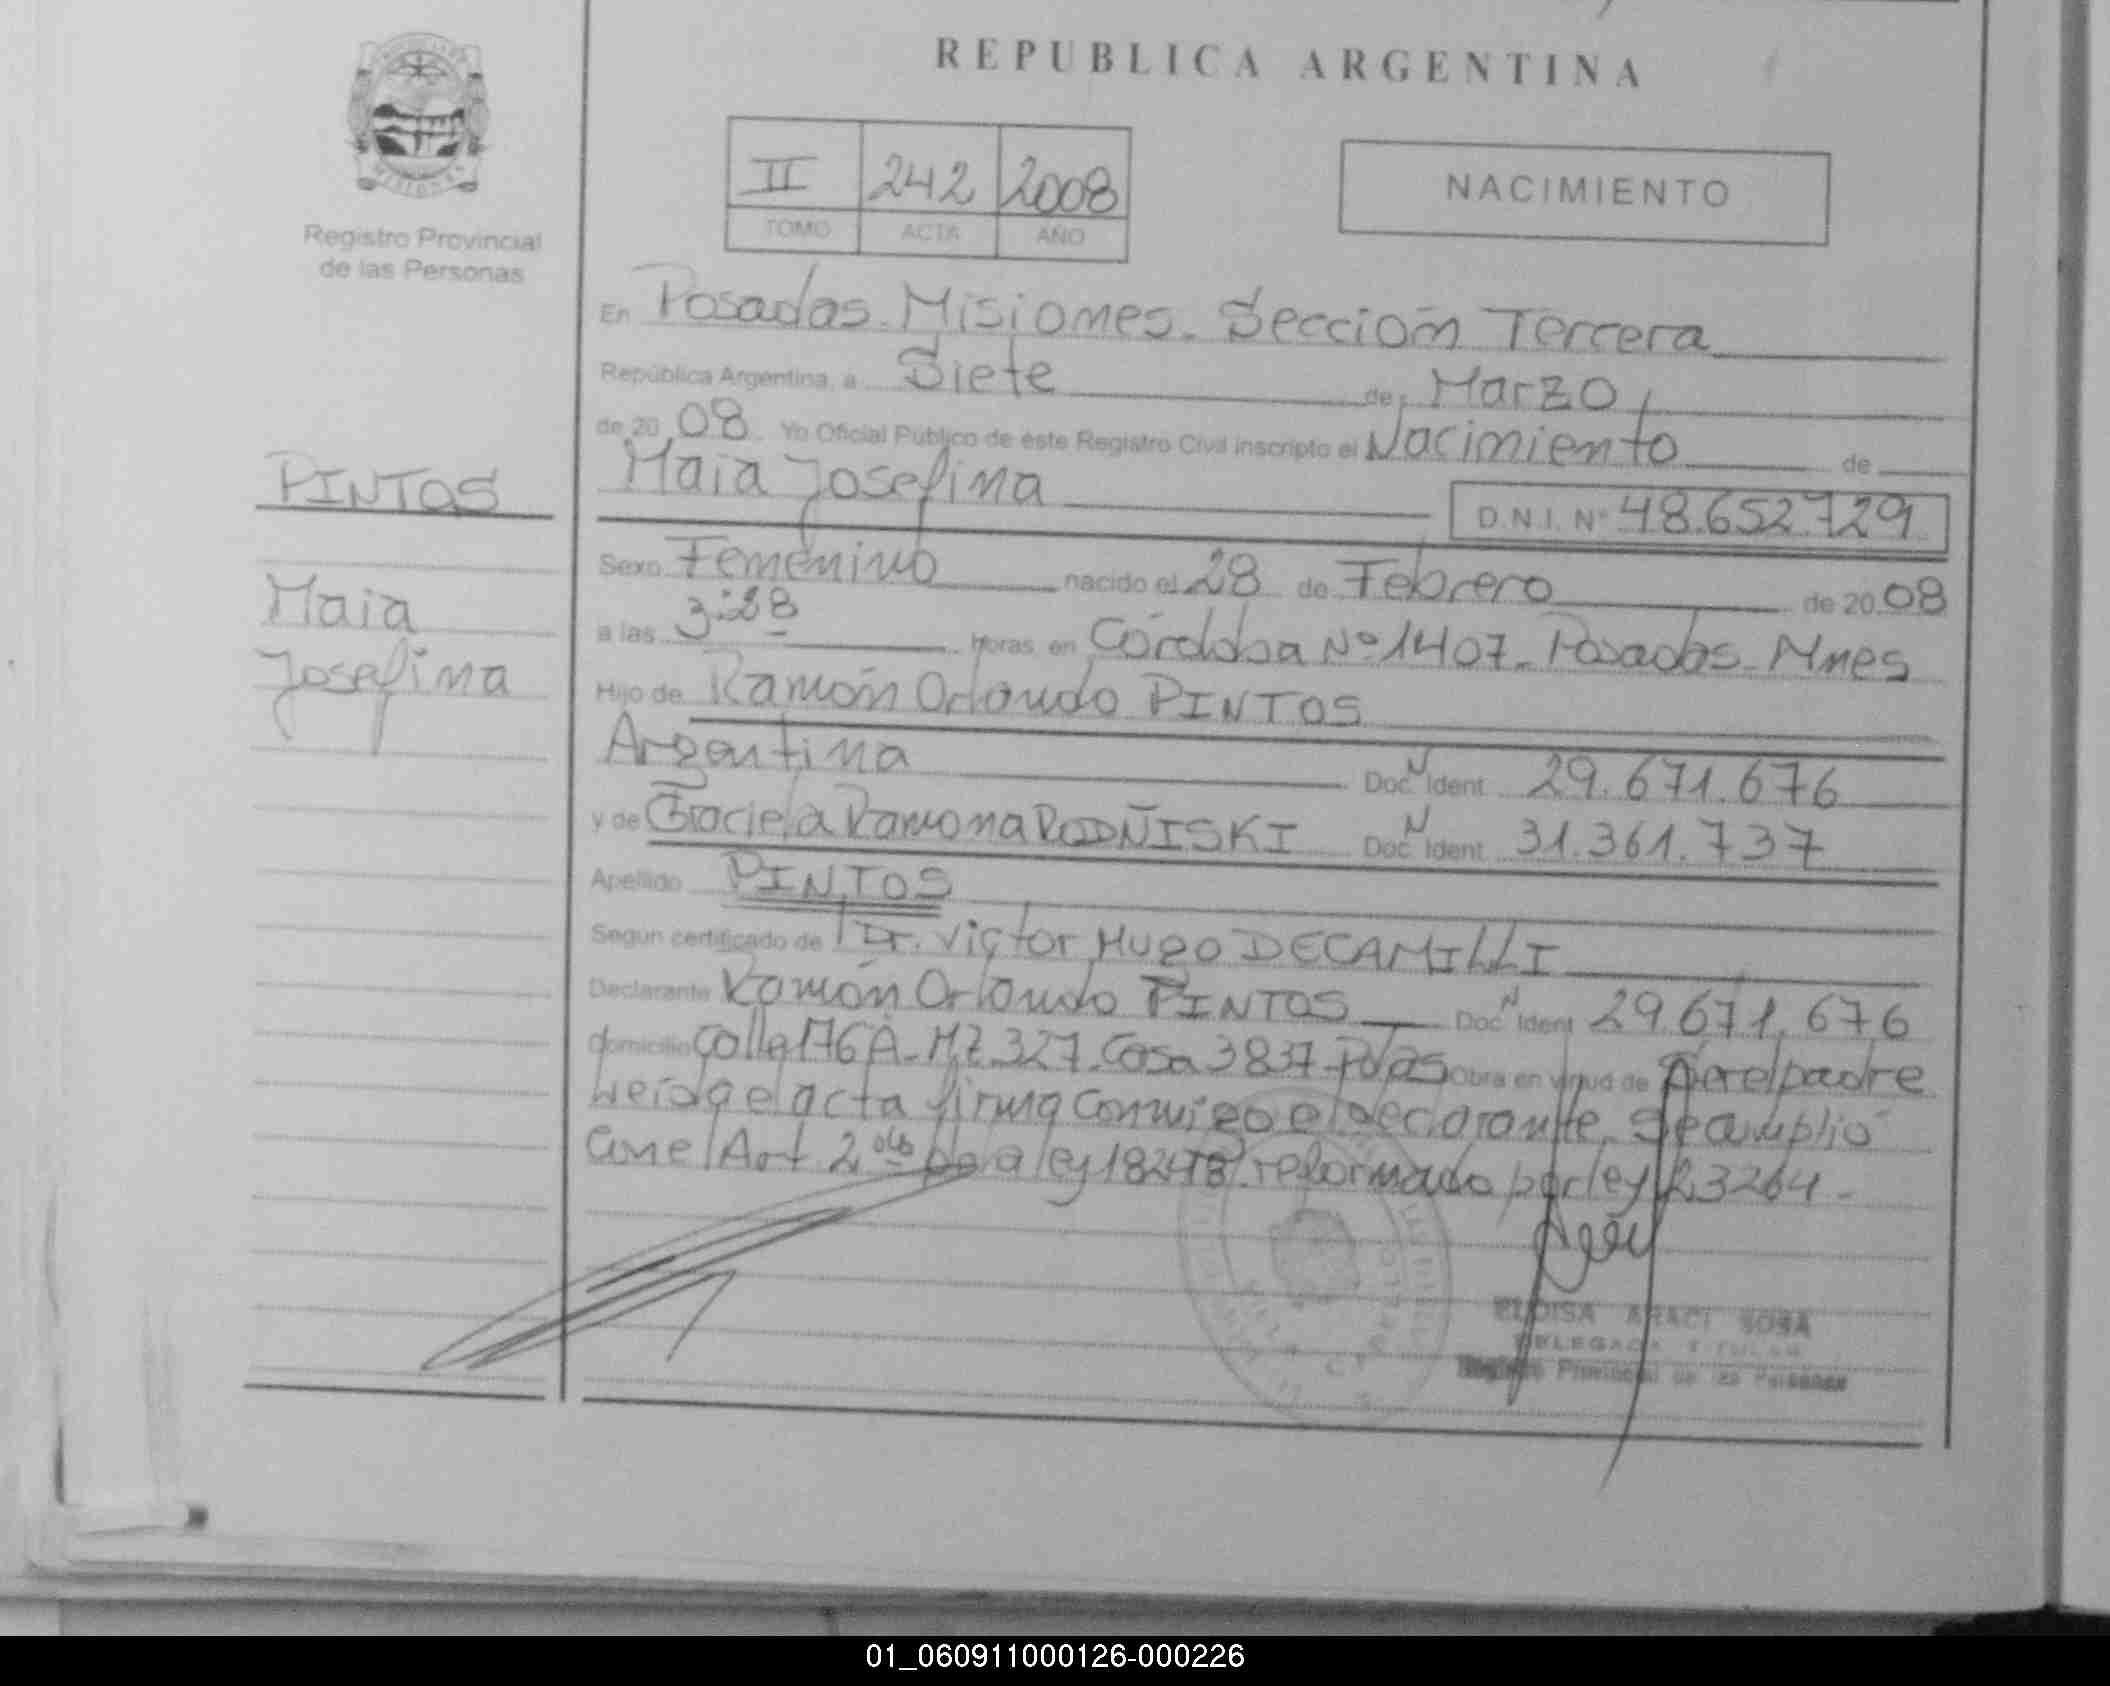 REPUBLICA ARGENTINA
MISIONES
Registro Provincial
de las Personas
II 242 2008
TOMO ACTA AÑO
NACIMIENTO
En Posadas. Misiones. Sección Tercera
República Argentina, a Siete de Marzo
de 20 08 Yo Oficial Público de éste Registro Civil inscripto el Nacimiento de
Maia Josefina D.N.I. Nº 48.652.729
PINTOS
Maia
Josefina
Sexo Femenino nacido el 28 de Febrero de 20 08
a las horas en Córdoba Nº 1407. Posadas. Mnes
Hijo de Ramón Orlando PINTOS
Argentina Doc. N Ident 29.671.676
y de Graciela Ramona RODÑISKI Doc. N Ident 31.361.737
Apellido PINTOS
Segun certificado de Dr. Victor Hugo DECAMILLI
Declarante Ramón Orlando PINTOS Doc. N Ident 29.671.676
domicilio Calle 176 A. Mz. 327. Casa 3837 Pdas Obra en virtud de Ser el padre
Leida el acta firma conmigo el declarante. Se cumplió
con el Art 2do de la ley 18248 reformado por ley 23264.
ELOISA ARACI SOSA
DELEGADA TITULAR
Registro Provincial de las Personas
01_060911000126-000226